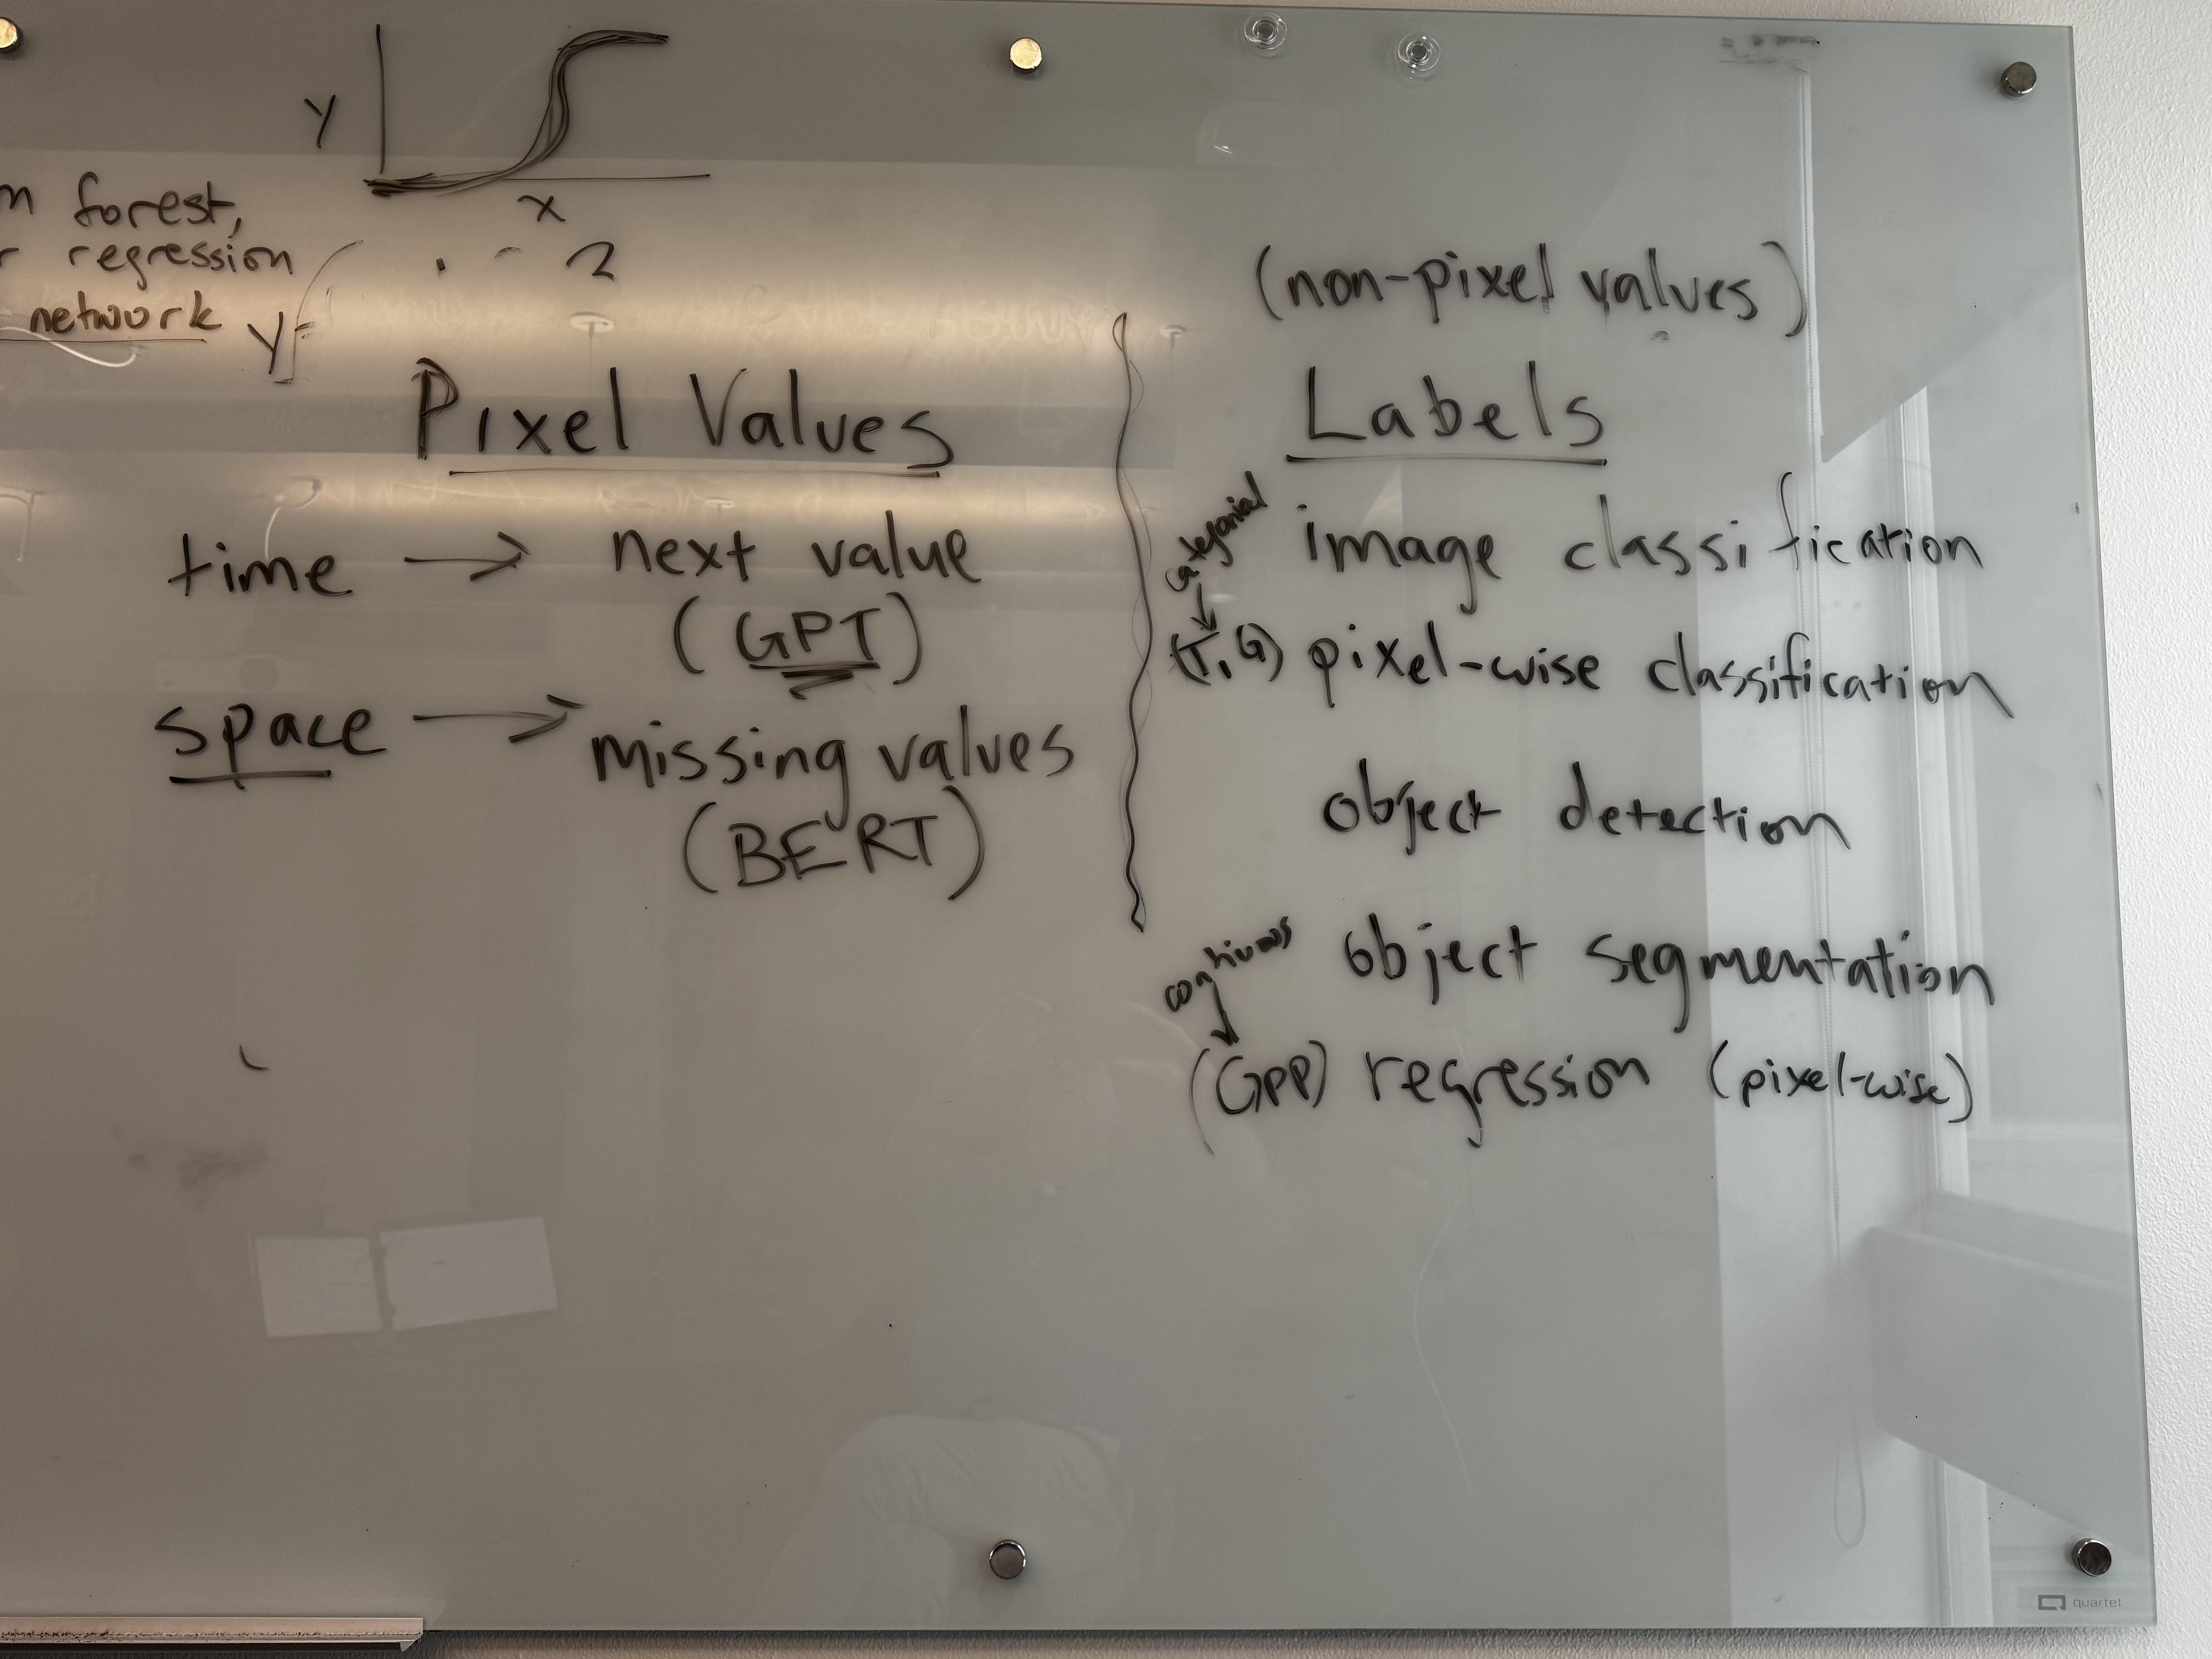 y
x
forest,
regression
network
y
2
Pixel Values
time → next value
(GPT)
space → missing values
(BERT)
(non-pixel values)
Labels
categorical
image classification
(T, G) pixel-wise classification
object detection
continuous
object segmentation
(GPP) regression (pixel-wise)
quartet